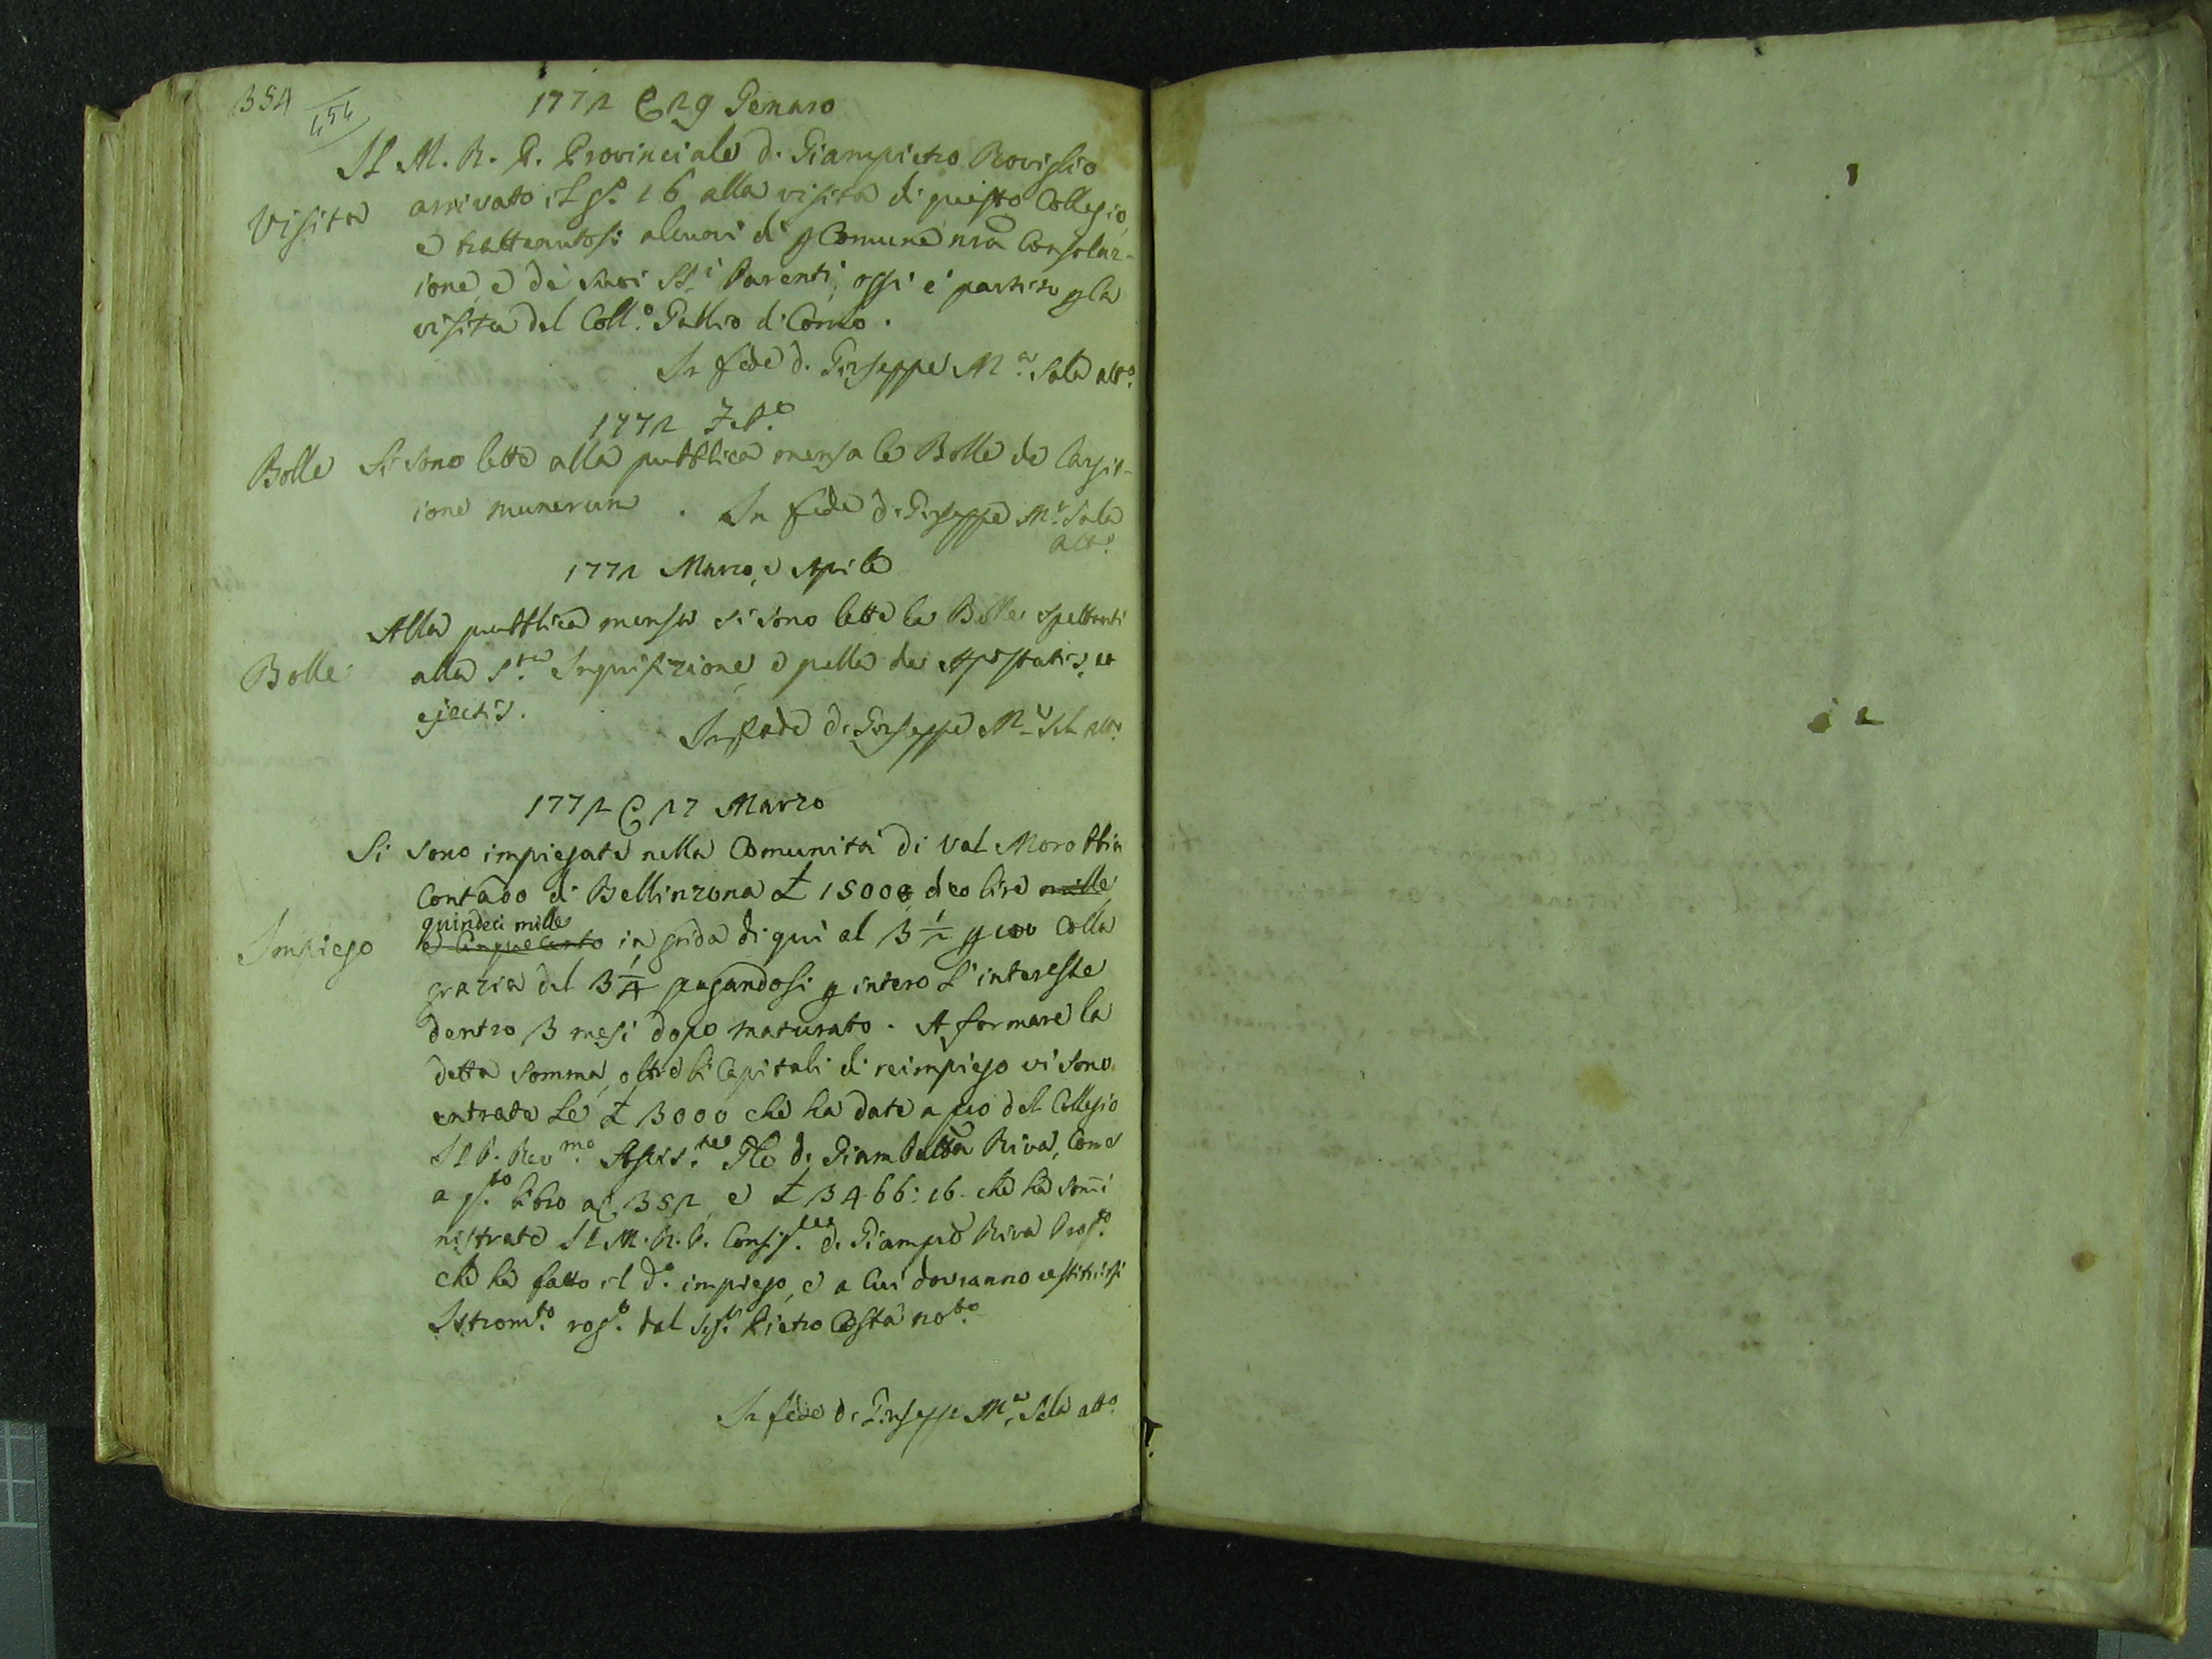 354
454
1772 29 Genaro
Il M. R. P. Provinciale d. Giampietro Roviglio
Visita
arrivato il gº. 16 alla visita di questo Collegio,
e trattenutosi alcuni dì p Comune nrã Consolaz-
ione, e de suoi SS.i Parenti, oggi è partito p la
visita del Coll.º Gallio di Como.
In fede d. Giuseppe M.a Sala att.º
1772 Feb.º
Bolle
Si sono lette alla pubblica mensa le Bolle de largit-
ione munerum. In fede d. Giuseppe M.a Sala
att.º
1772 Marzo, e Aprile
Alla pubblica mensa si sono lette le Bolle spettanti
Bolle
alla S.ta Inquisizione, e quella de Apostatis, et
ejectis.
In fede d. Giuseppe M.a Sala att.º
1772 27 Marzo
Si sono impiegate nella Comunità di Val Morobbia
Contado di Bellinzona £ 15000 dco lire mille
quindeci mille
Impiego
e Cinquecento in grida di qui al 3 1/2 p 100 colla
grazia del 3 1/4 pagandosi p intero l'interesse
dentro 3 mesi dopo maturato. A formare la
detta somma, oltre li Capitali di reimpiego vi sono
entrate le £ 3000 che ha date a pro del Collegio
Il P. Rev.mo Assis.te Gle d. Giamb̃atta Riva, come
a gs.to libro al 352, e £ 3466:16. che ha som̃i
nistrate Il M. R. P. Consig.re d. Giampiõ Riva Prep.to
che ha fatto il d.º impiego, e a lui dovranno restituirsi
Istrom.to rog.º dal Sig.r Pietro Costa not.º
In fede d. Giuseppe M.a Sala att.º